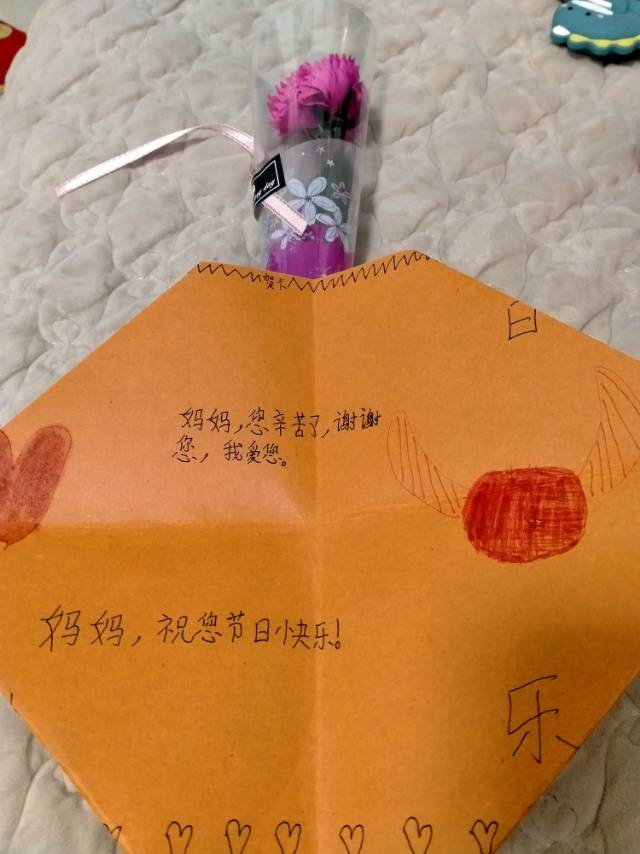 贺卡
日
妈妈，您辛苦了，谢谢
您，我爱您。
妈妈，祝您节日快乐！
乐